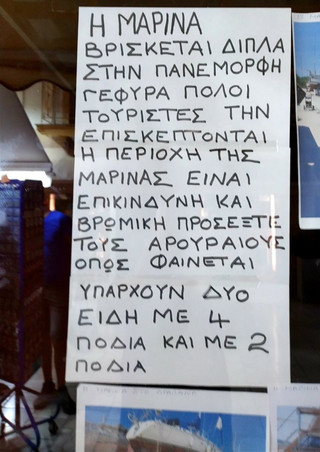 Η ΜΑΡΙΝΑ
ΒΡΙΣΚΕΤΑΙ ΔΙΠΛΑ
ΣΤΗΝ ΠΑΝΕΜΟΡΦΗ
ΓΕΦΥΡΑ ΠΟΛΟΙ
ΤΟΥΡΙΣΤΕΣ ΤΗΝ
ΕΠΙΣΚΕΠΤΟΝΤΑΙ
Η ΠΕΡΙΟΧΗ ΤΗΣ
ΜΑΡΙΝΑΣ ΕΙΝΑΙ
ΕΠΙΚΙΝΔΥΝΗ ΚΑΙ
ΒΡΩΜΙΚΗ ΠΡΟΣΕΞΤΕ
ΤΟΥΣ ΑΡΟΥΡΑΙΟΥΣ
ΟΠΩΣ ΦΑΙΝΕΤΑΙ
ΥΠΑΡΧΟΥΝ ΔΥΟ
ΕΙΔΗ ΜΕ 4
ΠΟΔΙΑ ΚΑΙ ΜΕ 2
ΠΟΔΙΑ